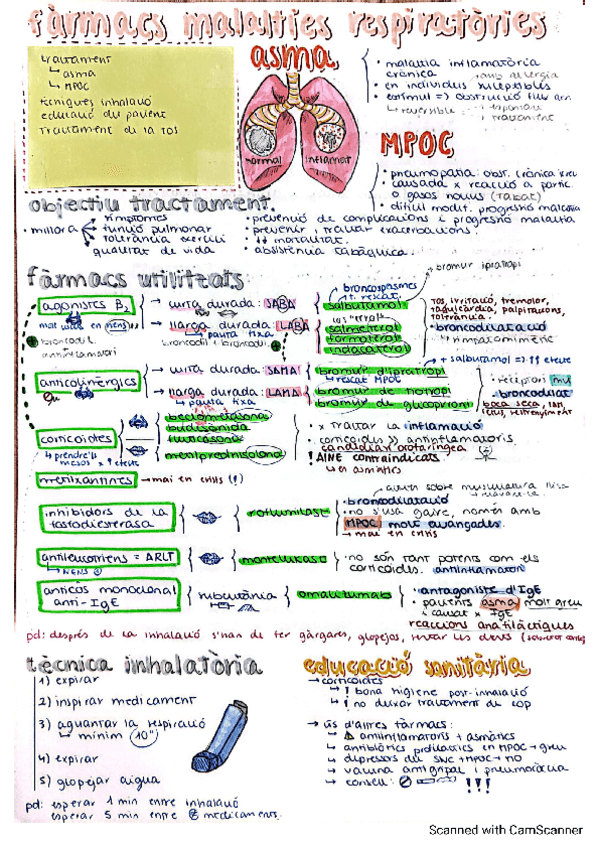 fàrmacs malalties respiratòries
tractament
↳ asma
↳ MPOC
tècniques inhalació
educació du pacient
tractament de la tos
asma
normal
inflamat
• malaltia inflamatòria
crònica
• en individus susceptibles
• estímul => obstrucció flux aeri
↳ reversible
tractament
MPOC
• pneumopatia: obst. crònica
• causada x reacció a partic
o gasos nocius (tabac)
• difícil modif. progresió malaltia
objectiu tractament.
• millora
símptomes
funció pulmonar
tolerància exercici
qualitat de vida
• prevenció de complicacions i progresió malaltia
• prevenir i tractar exacerbacions.
• ↓↓ mortalitat.
• abstinència tabàquica.
fàrmacs utilitzats:
agonistes β₂
→ curta durada: SABA
→ llarga durada: LABA
↳ pauta fixa
broncoespasmes
salbutamol
salmeterol
formoterol
indacaterol
bromur ipratropi
tos, irritació, tremolor,
taquicàrdia, palpitacions,
tolerància.
• broncodilatació
↳ simpaticomimètic
+ salbutamol => ↑↑ efecte
anticolinèrgics
→ curta durada: SAMA
→ llarga durada: LAMA
↳ pauta fixa
bromur d'ipratropi
↳ rescat MPOC
bromur de tiotropi
bromur de glicopirroni
• receptors
broncodilat
boca seca
corticoides
↳ prendre'ls
mesos x ↑ efecte
beclometasona
budisònida
fluticasona
metilprednisolona
× tractar la inflamació
• corticoides >> antiinflamatoris
candidiasi orofaríngea
! AINE contraindicats
↳ en asmàtics
metilxantines → mai en crisis (!)
inhibidors de la
fosfodiesterasa
roflumilast
• broncodilatació
• no s'usa gaire, només amb
MPOC molt avançades.
→ mai en crisis
antileucotriens = ARLT
↳ nens
montelukast
• no són tant potents com els
corticoides. antiinflamatori
anticòs monoclonal
anti-IgE
subcutània
omalizumab
• antagoniste d'IgE
• pacients asma molt greu
i causat x IgE
reaccions anafilàctiques
pd: després de la inhalació s'han de fer gàrgares, glopejos, rentar les dents
tècnica inhalatòria
1) expirar
2) inspirar medicament
3) aguantar la respiració
↳ mínim 10"
4) expirar
5) glopejar aigua
pd: esperar 1 min entre inhalació
esperar 5 min entre ≠ medicaments.
educació sanitària
→ corticoides
↳ ! bona higiene post-inhalació
↳ ! no deixar tractament de cop
→ ús d'altres fàrmacs:
↳ antiinflamatoris + asmàtics
↳ antibiòtics profilactics en MPOC + greu
↳ depressors del SNC + MPOC → NO
↳ vacuna antigripal i pneumocòccia
↳ consell: !!!
Scanned with CamScanner